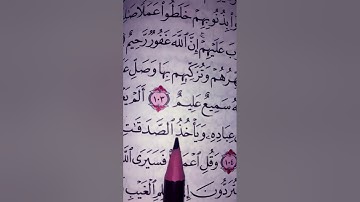 بِذُنُوبِهِمْ خَلَطُوا۟ عَمَلًا
عَلَيْهِمْ ۚ إِنَّ ٱللَّهَ غَفُورٌ رَّحِيمٌ
هِّرُهُمْ وَتُزَكِّيهِم بِهَا وَصَلِّ عَ
هُ سَمِيعٌ عَلِيمٌ ١٠٣ أَلَمْ يَعْ
عِبَادِهِۦ وَيَأْخُذُ ٱلصَّدَقَـٰتِ
١٠٤ وَقُلِ ٱعْمَ فَسَيَرَى ٱللَّ
تُرَدُّونَ إِ لِمِ ٱلْغَيْبِ